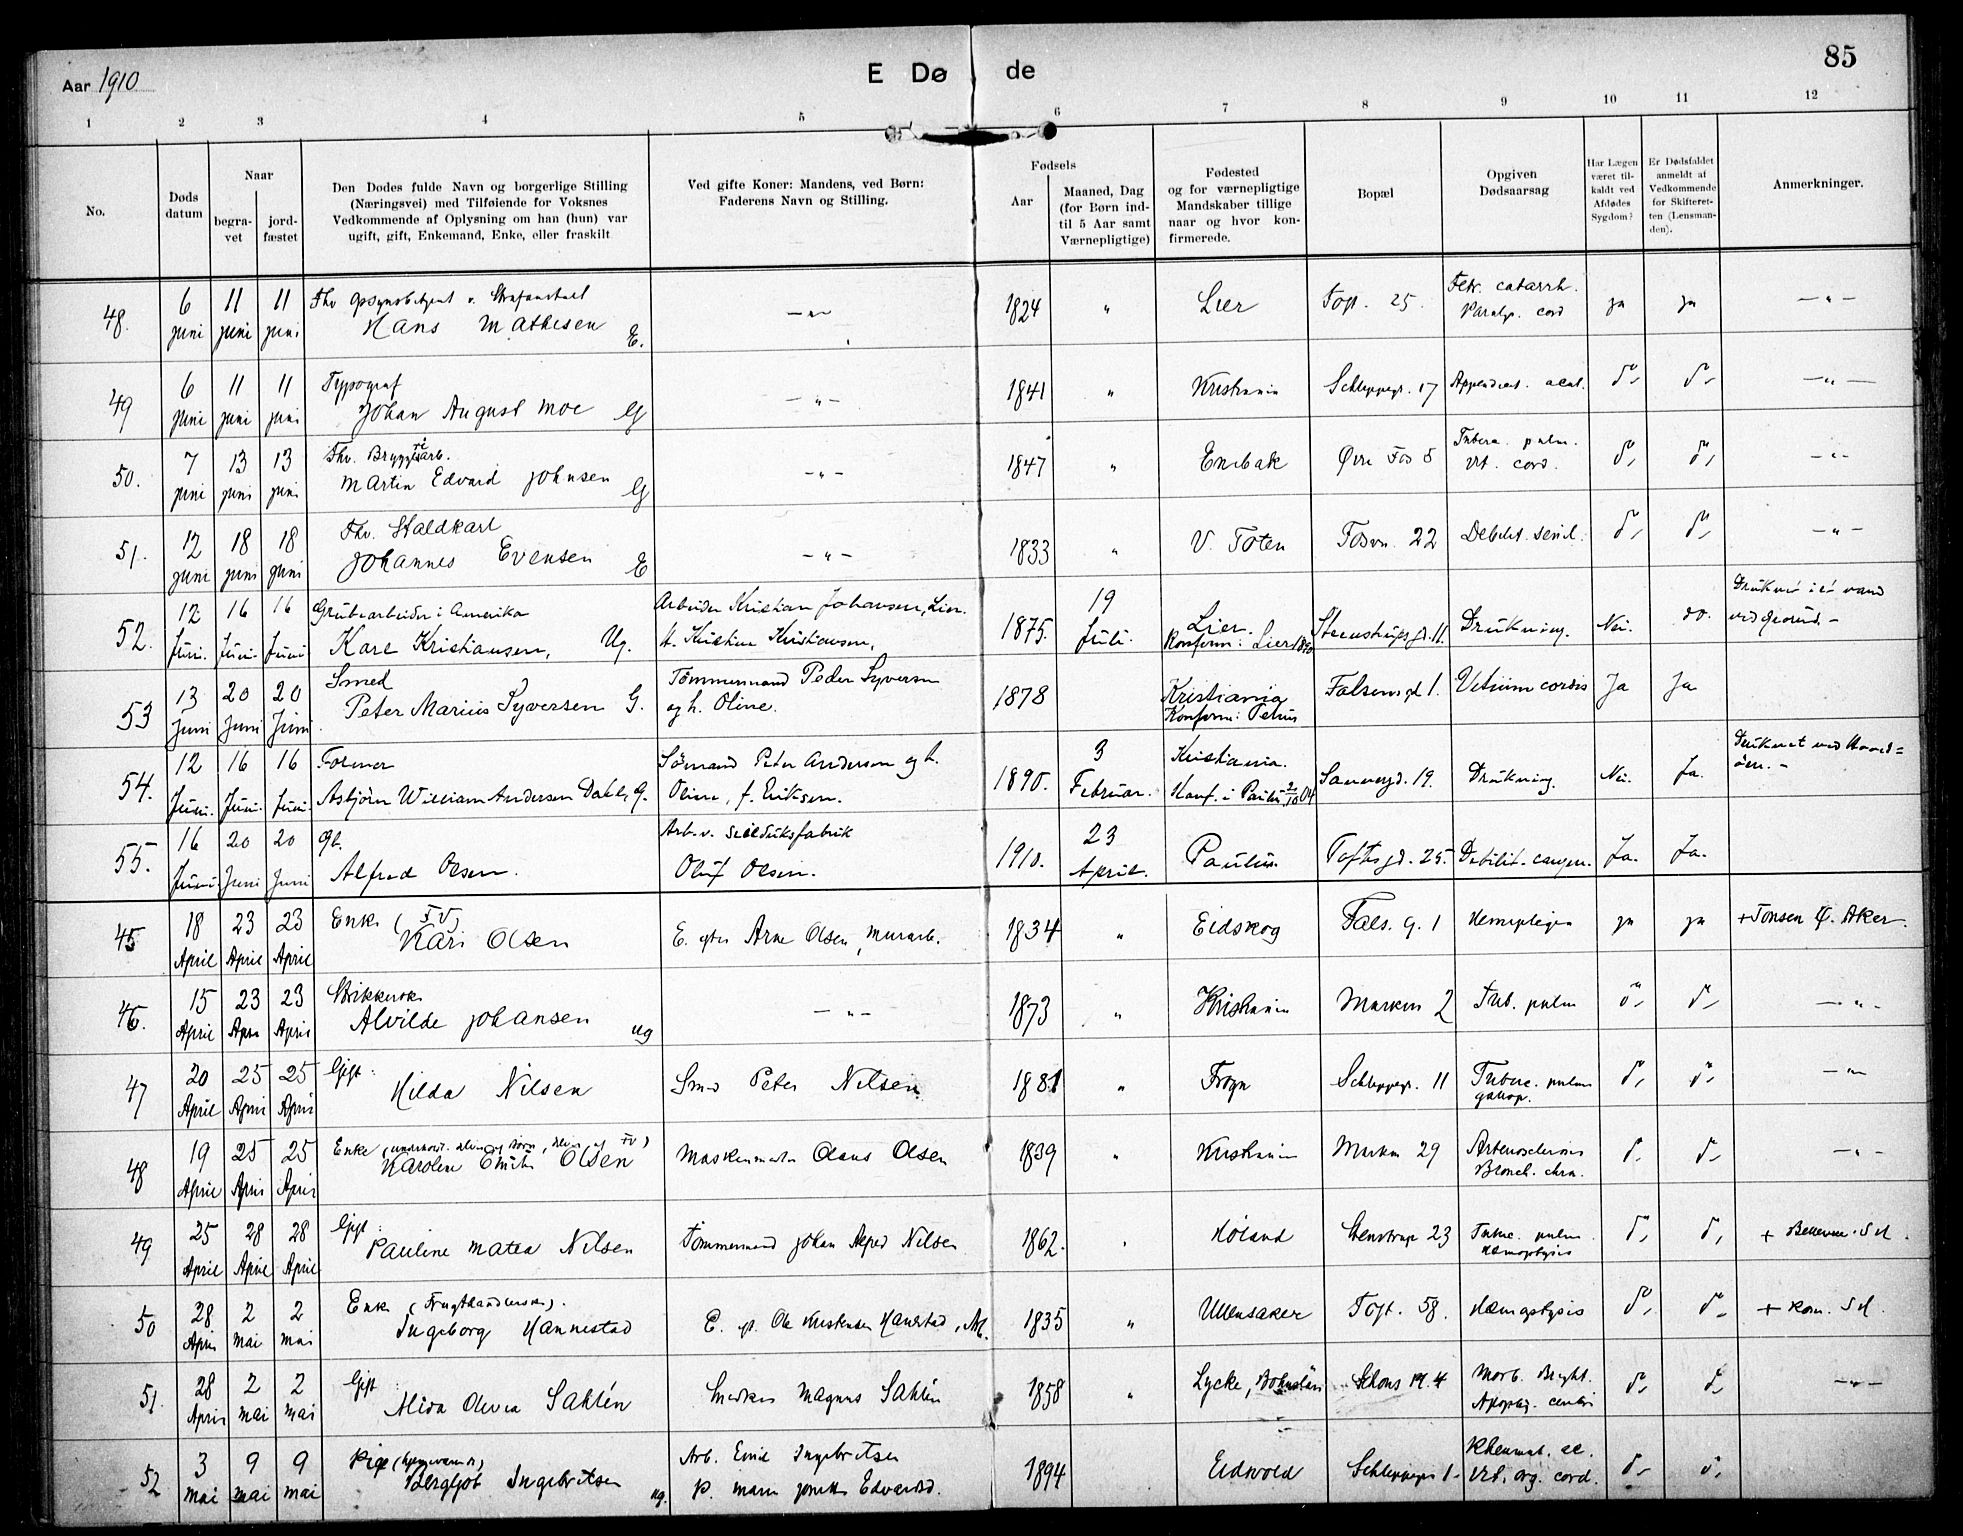 Aar 1910
E Døde
85
1 2 3 4 5 6 7 8 9 10 11 12
No.
Døds datum
Naar
begravet
jordfæstet
Den Dødes fulde Navn og borgerlige Stilling
(Næringsvei) med Tilføiende for Voksnes
Vedkommende af Oplysning om han (hun) var
ugift, gift, Enkemand, Enke, eller fraskilt
Ved gifte Koner: Mandens, ved Børn:
Faderens Navn og Stilling.
Fødsels
Aar
Maaned, Dag
(for Børn ind-
til 5 Aar samt
Værnepligtige)
Fødested
og for værnepligtige
Mandskaber tillige
naar og hvor kon-
firmerede.
Bopæl
Opgiven
Dødsaarsag
Har Lægen
været til-
kaldt ved
Afdødes
Sygdom?
Er Dødsfaldet
anmeldt af
Vedkommende
for Skifteret-
ten (Lensman-
den).
Anmerkninger.
48. 6 juni 11 juni 11 juni
Hans Mathesen E.
—„— 1824 „ Lier Toft. 25. ja ja —„—
49 6 juni 11 juni 11 juni
Typograf
Johan August Moe G
—„— 1841 „ Kristiania Schleppegr. 17 do do —„—
50. 7 juni 13 juni 13 juni
Fhv. Bryggeriarb.
Martin Edvard Johnsen G
—„— 1847 „ Enebak Øvre Fos 8 Tuberc. pulm.
Vit. cord. do do —„—
51. 12 juni 18 juni 18 juni
Fhv. Staldkarl
Johannes Evensen E
—„— 1833 „ V. Toten Fosv. 22 Debilit. senil. do do —„—
52. 12 Juni. 16 Juni. 16 Juni
Grubearbeider i Amerika
Karl Kristiansen, Ug.
Arbeider Kristian Johansen, Lier.
H. Kristine Kristiansen.
1875. 19 Juli. Lier.
Konfirm: Lier 1890 Steenstrupsgd. 11. Drukning. Nei. do.
53 13 Juni 20 Juni 20 Juni
Smed
Peter Marius Syversen G.
Tømmermand Peder Syversen
og h. Oline.
1878 Kristiania
Konfirm: Petrus Falsensgd 1. Vitium cordis Ja Ja
54. 12 Juni. 16 Juni. 16 Juni.
Former
Asbjørn William Andersen Dahl, G.
Sømand Peter Andersen og h.
Oline, f. Eriksen.
1890. 3 Februar. Kristiania.
Konf. i Paulus 2/10 04 Sannergd. 19. Drukning. Nei. Ja.
55. 16 Juni. 20 Juni 20 Juni
Gb.
Alfred Olsen.
Arb. v. Seildugsfabrik
Oluf Olsen.
1910. 23 April. Paulus. Toftsgd. 25. Debilit. congen. Ja. Ja.
45 18 April 23 April 23 April
Enke (FV)
Kari Olsen
E. efter Arne Olsen, Murarb.
1834 „ Eidskog Fals. g. 1 Hemiplegia ja ja + Tonsen K. Aker.
46. 15 April 23 Apri 23 April
Strikkerske
Alvilde Johansen ug
—„— 1873 „ Kristiania Marken 2 Tub. pulm do do —„—
47 20 April 25 April 25 April
Gift:
Hilda Nilsen
Smed Peter Nilsen
1881 „ Frogn Schleppegr. 11 Tuberc. pulm
galop. do do —„—
48 19 April 25 April 25 April
Karoline Emilie Olsen
Maskinmester Olaus Olsen
1839 „ Kristiania Marken 29 Arteriosclerosis
Bronch. chron. do do —„—
49 25 April 28 April 28 April
Gift:
Pauline Matea Nilsen
Tømmermand Johan Alfred Nilsen
1862. „ Høland Stenstrup 23 Tuberc. pulm
Hæmoptysis do do
50 28 April 2 mai 2 mai
Enke (Frugthandlerske).
Ingeborg Hannestad
1835 „ Ullensaker Toft. 58. Hæmoptysis do do
51. 28 April 2 mai 2 mai
Gift:
Alida Olivia Sahlén
Snedker Magnus Sahlén
1858 „ Lycke, Bohuslän Schous Pl. 4 Morb. Bright.
Apoplex. cerebri do do —„—
52 3 mai 9 mai 9 mai
Pige
Bergljot Ingebretsen ug.
Arb. Emil Ingebretsen
1894 Eidsvold Schleppegr 1 Rheumat. ac.
Vit. org. cord. do do